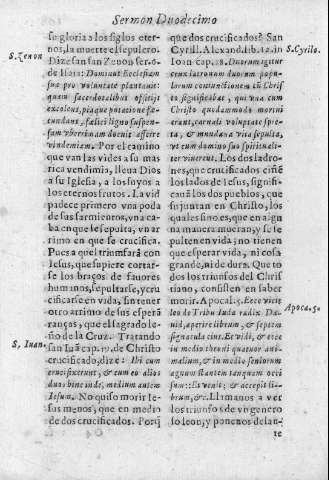 Sermon Duodecimo
su gloria a los siglos eter-
nos, la muerte el sepulcro.
S. Zenon
Dize san san Zenon ser. 6.
de Isaia: Dominus Ecclesiam
suæ pro voluntate plantauit:
quam sacerdotalibus officijs
excolens, piaque potatione fæ-
cundans, fælici ligno suspen-
sam vberrimam docuit afferre
vindemiam. Por el camino
que van las vides a su mas
rica vendimia, lleua Dios
a su Iglesia, a los suyos a
los eternos frutos. La vid
padece primero vna poda
de sus sarmientos, vna ca-
ba en que se sepulta, vn ar
rimo en que se crucifica.
Pues a quel triumfarà con
Iesus, que supiere cortar-
se los braços de fauores
humanos, sepultarse, y cru
cificarse en vida, sin tener
otro arrimo de sus espera
ranças, que el sagrado le-
ño de la Cruz. Tratando
S. Iuan.
san Iuã cap. 19. de Christo
crucificado, dize: Ibi eum
crucifixerunt, & cum eo alios
duos hinc inde, medium autem
Iesum. No quiso morir Ie-
sus menos, que en medio
de dos crucificados. Porq̃
que dos crucificados? San
Cyrill. Alexand. lib. 12. in
S. Cyrilo.
Ioan cap. 28. Duorum igitur
crux latronum duorum popu-
lorum cuntunctionem in Christ
to significabat, qui vna cum
Christo quodammodo morini
erant, carnali voluptate spre-
ta, & mundana vita sepulta,
vt cum domino suo spiritualι-
ter viuerent. Los dos ladro-
nes, que crucificados ciñẽ
los lados de Iesus, signifi-
can a los dos pueblos, que
se juntan en Christo, los
quales sino es, que en algu
na manera mueran, y se se
pulten en vida; no tienen
que esperar vida, ni cosa
grande, ni de dura. Que to
dos los triunfos del Chris
tiano, consisten en saber
morir. Apocal. 5. Ecce vicit
Apoca. 5.
leo de Tribu Iuda radix Da-
uid, aperire librum, & septem
signacula eius. Et vidi, & ecce
in medio throni quatuor ani-
malium, & in medio seniorum
agnum stantem tanquam occi
sum:: Et venit; & accepit li-
brum, &c. Llamanos a ver
los triunfos de vn genero
so leon, y ponenos delan-
te